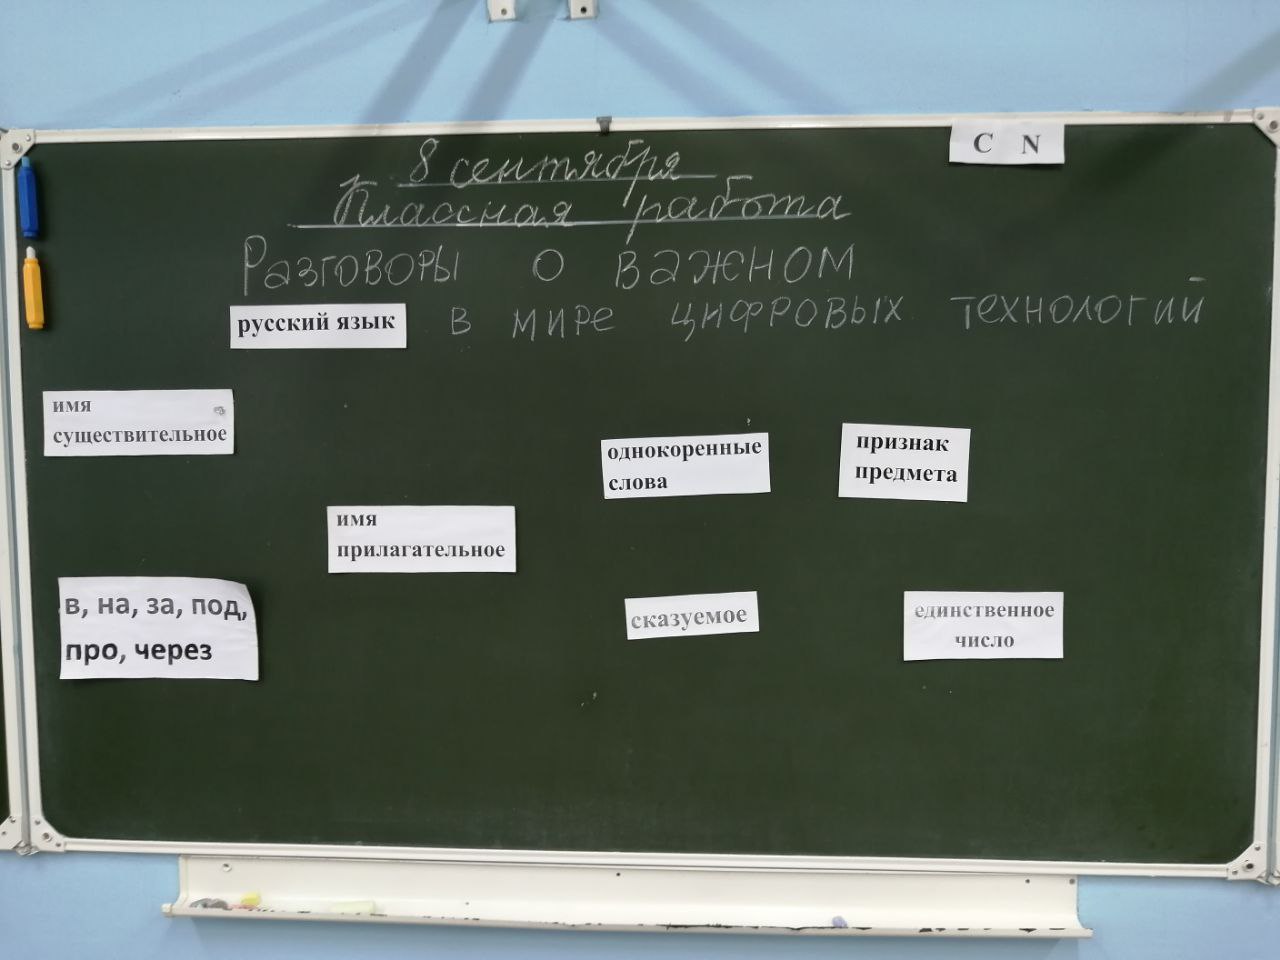 C N
8 сентября
Классная работа
Разговоры о важном
русский язык в мире цифровых технологий
имя
существительное
однокоренные
слова
признак
предмета
имя
прилагательное
в, на, за, под,
про, через
сказуемое
единственное
число